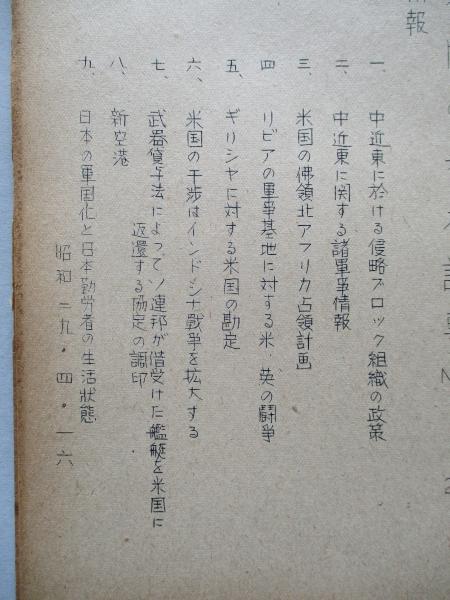 情報
一、 中近東に於ける侵略ブロック組織の政策
二、 中近東に関する諸軍事情報
三、 米国の佛領北アフリカ占領計画
四 リビアの軍事基地に対する米、英の闘争
五、 ギリシヤに対する米国の勘定
六、 米国の干渉はインドシナ戦争を拡大する
七、 武器貸与法によつてソ連邦が借受けた艦艇を米国に
返還する協定の調印
八、 新空港
九、 日本の軍国化と日本勤労者の生活状態
昭和二九・四・一六